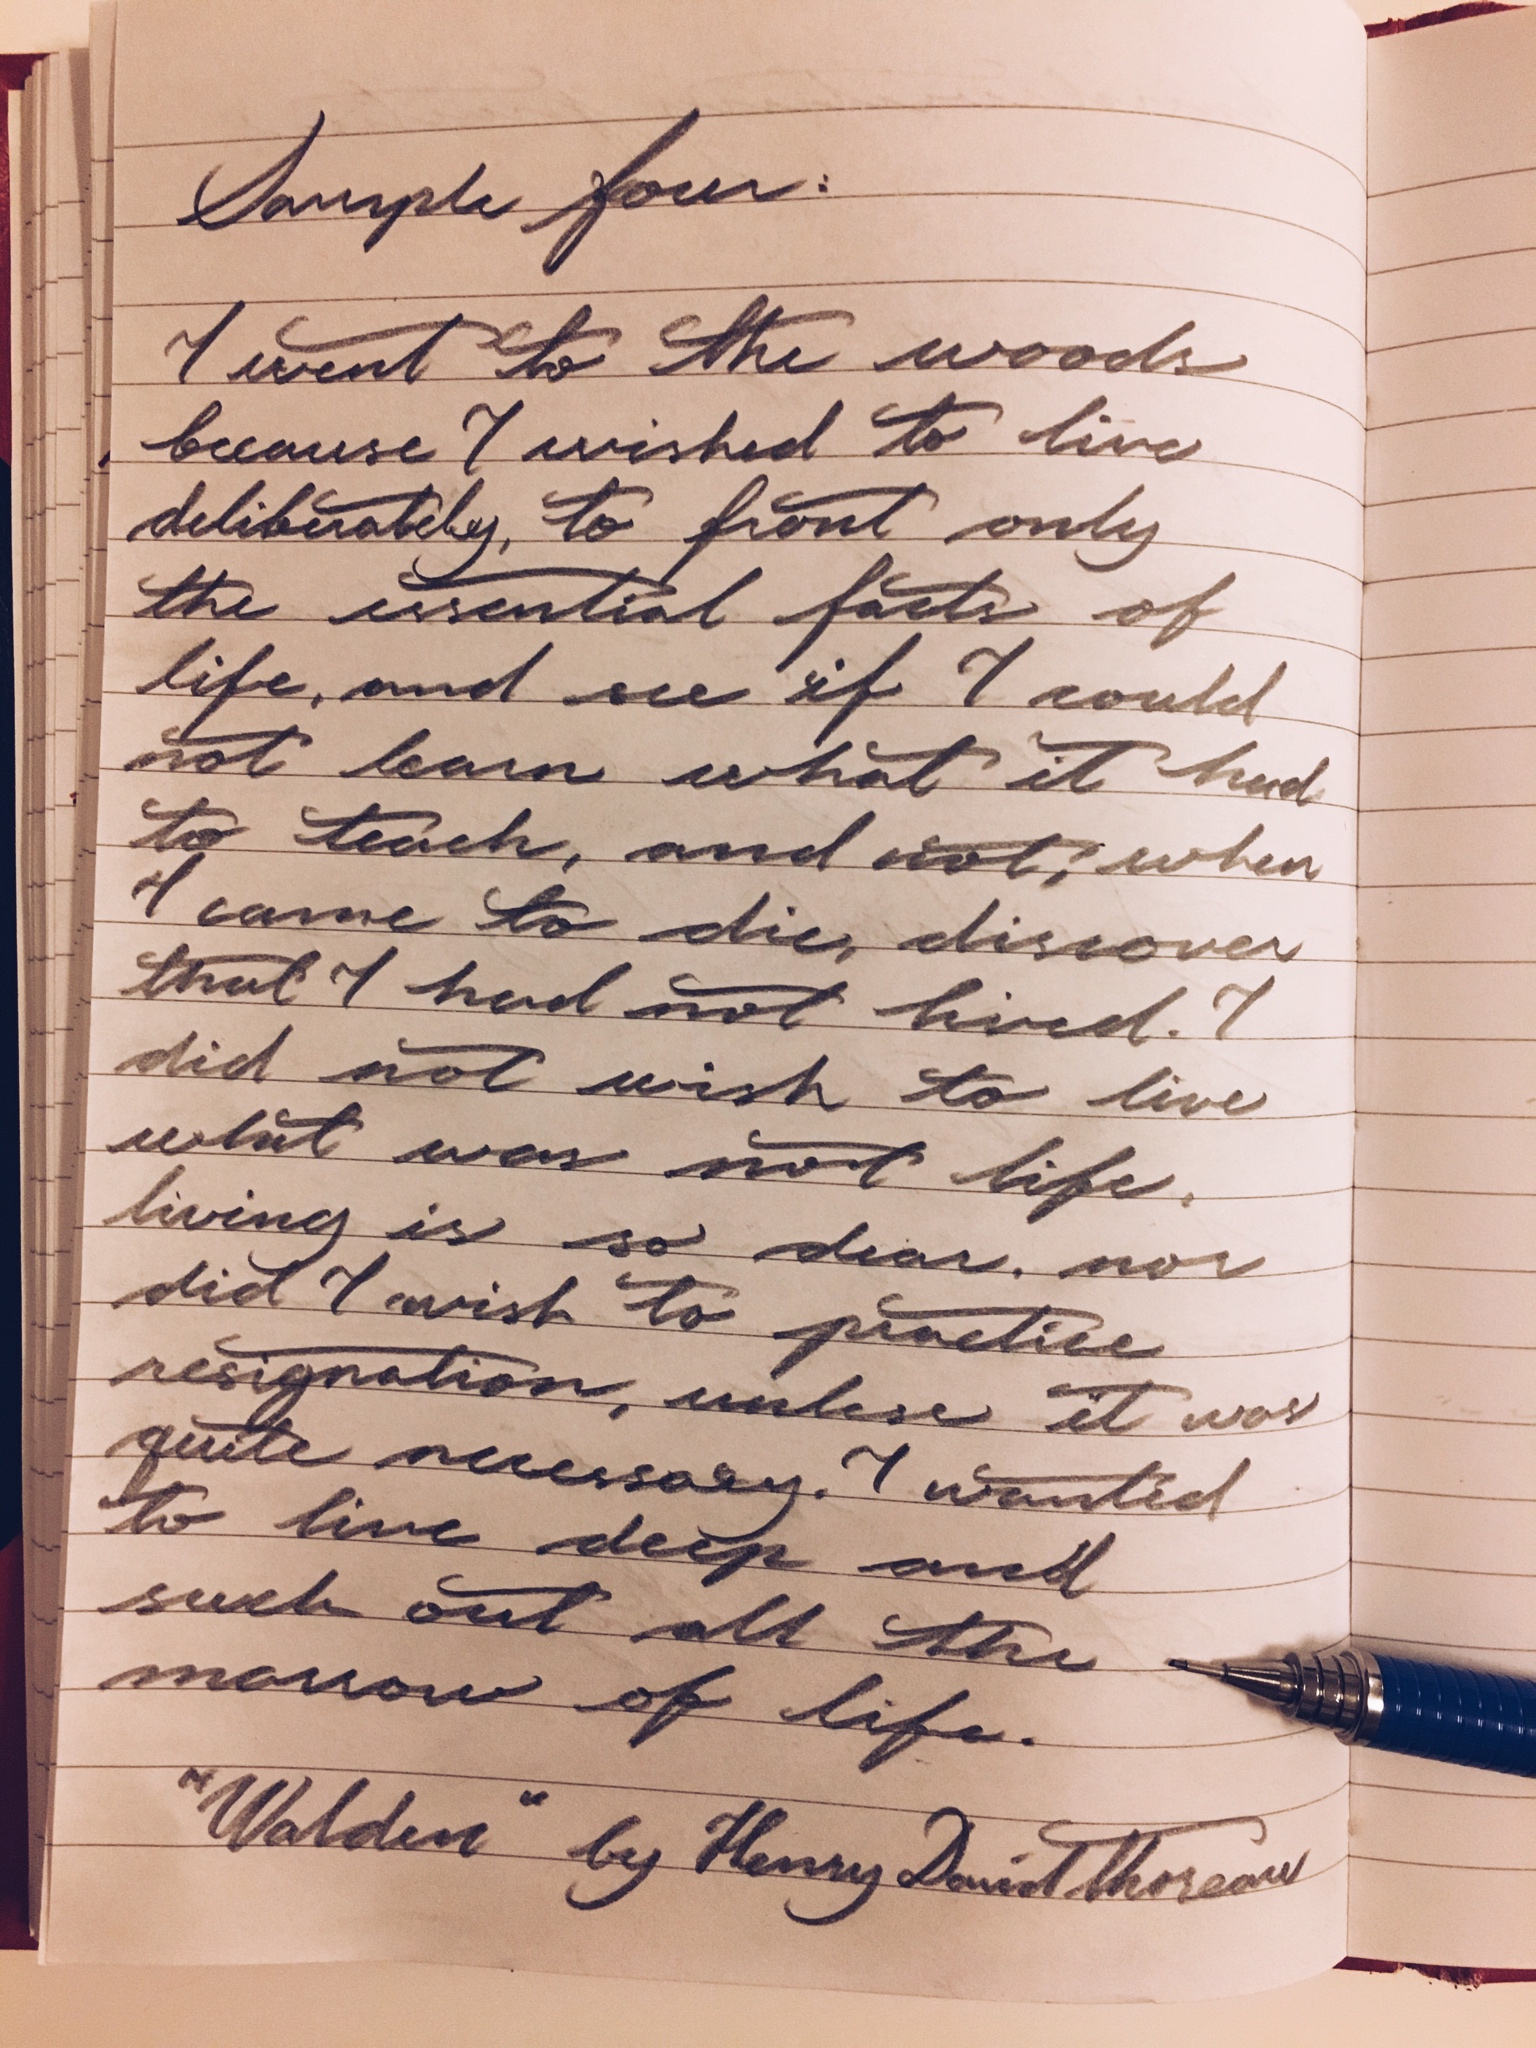 Sample four:
I went to the woods
because I wished to live
deliberately, to front only
the essential facts of
life, and see if I could
not learn what it had
to teach, and not, when
I came to die, discover
that I had not lived. I
did not wish to live
what was not life.
living is so dear. nor
did I wish to practice
resignation, unless it was
quite necessary. I wanted
to live deep and
suck out all the
marrow of life.
"Walden" by Henry David Thoreau